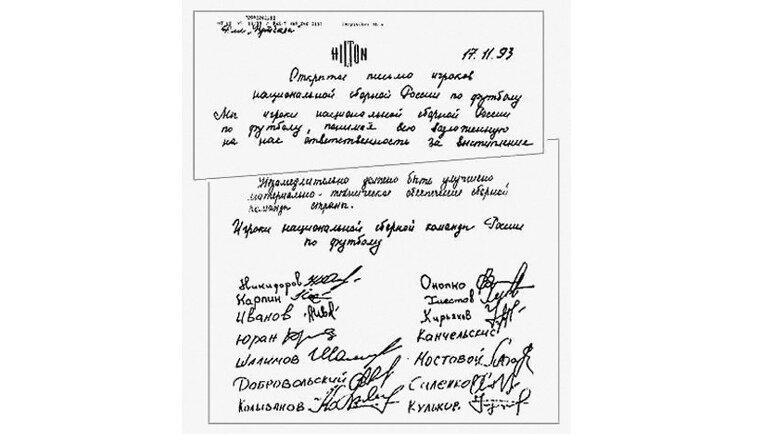 HILTON
17.11.93
Открытое письмо игроков
национальной сборной России по футболу
Мы игроки национальной сборной России
по футболу, понимая всю возложенную
на нас ответственность за выступление
Незамедлительно должно быть улучшено
материально-техническое обеспечение сборной
команды страны.
Игроки национальной сборной команды России
по футболу
Никифоров
Карпин
Иванов
Юран
Шалимов
Добровольский
Колыванов
Онопко
Хлестов
Кирьяков
Канчельскис
Мостовой
Саленко
Кульков